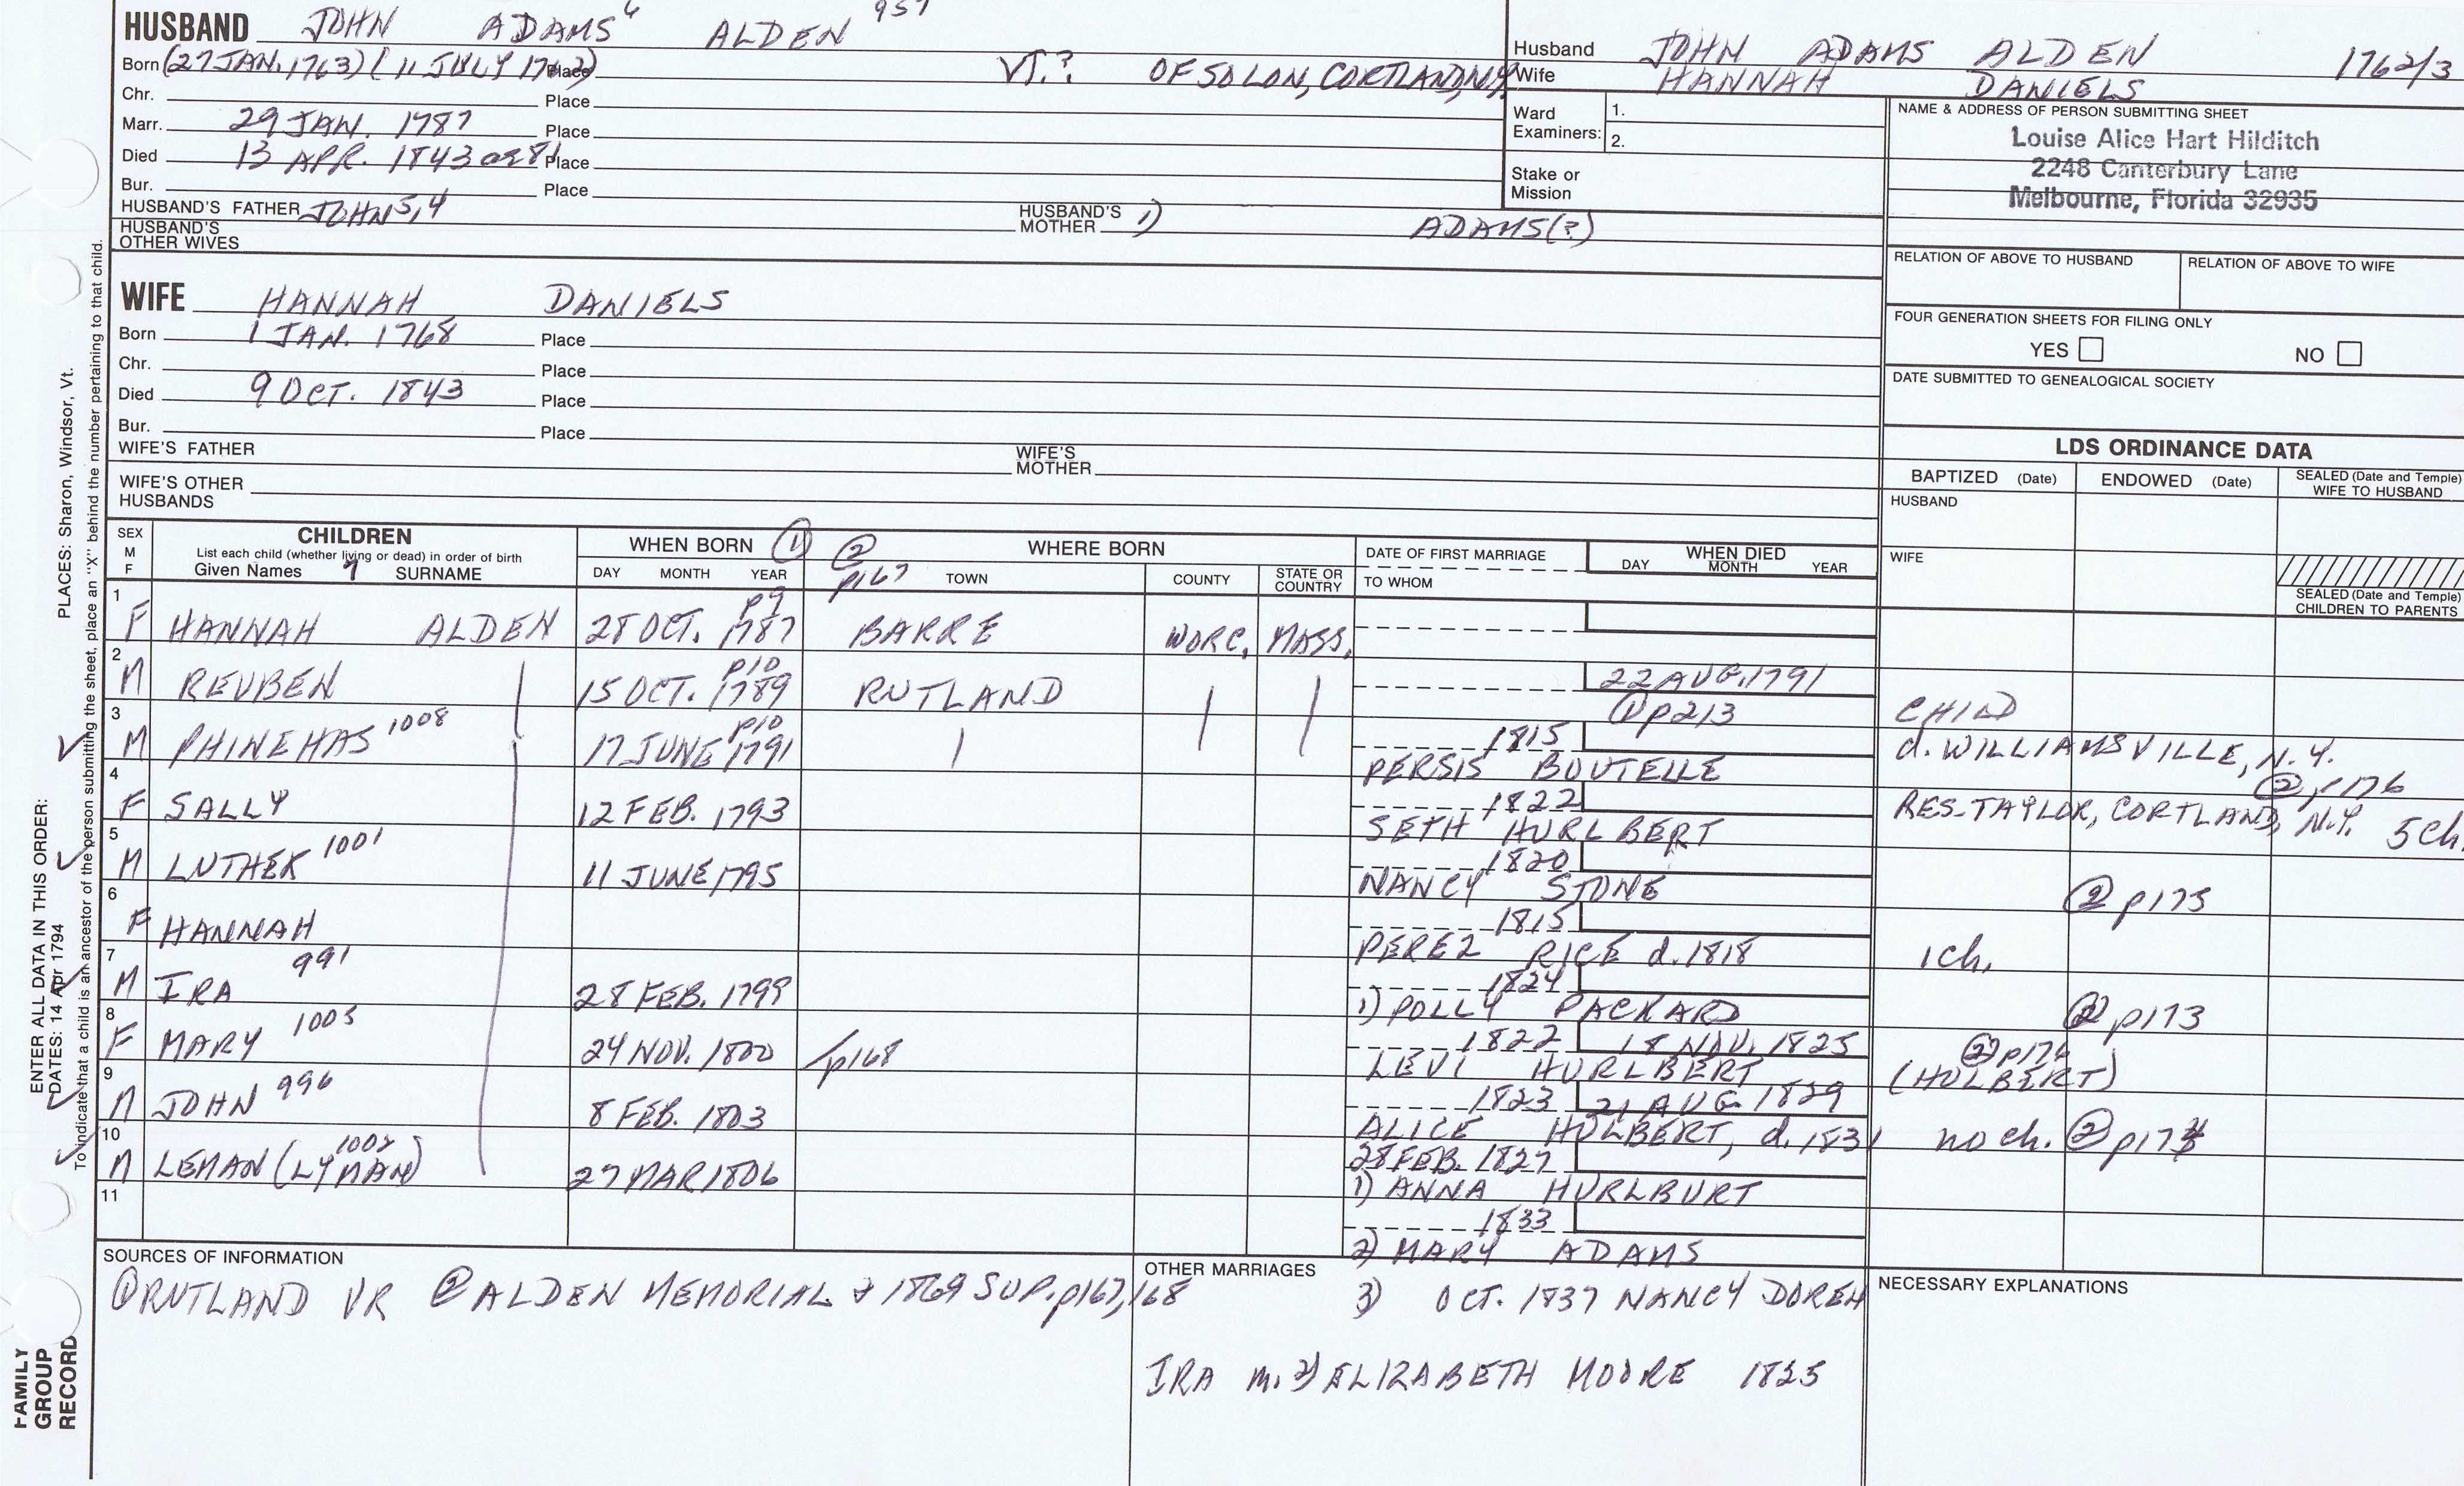 HUSBAND JOHN ADAMS 6 ALDEN 957
Born (27 JAN. 1763) (11 JULY 1762) Place VT.? OF SOLON, CORTLAND, N.Y.
Chr. Place
Marr. 29 JAN. 1787 Place
Died 13 APR. 1843 OR 81 Place
Bur. Place
HUSBAND'S FATHER JOHN 5,4 HUSBAND'S MOTHER 1) ADAMS(?)
HUSBAND'S OTHER WIVES
Husband JOHN ADAMS ALDEN 1762/3
Wife HANNAH DANIELS
Ward Examiners: 1.
2.
Stake or Mission
NAME & ADDRESS OF PERSON SUBMITTING SHEET
Louise Alice Hart Hilditch
2248 Canterbury Lane
Melbourne, Florida 32935
RELATION OF ABOVE TO HUSBAND RELATION OF ABOVE TO WIFE
FOUR GENERATION SHEETS FOR FILING ONLY
YES NO
DATE SUBMITTED TO GENEALOGICAL SOCIETY
WIFE HANNAH DANIELS
Born 1 JAN. 1768 Place
Chr. Place
Died 9 OCT. 1843 Place
Bur. Place
WIFE'S FATHER WIFE'S MOTHER
WIFE'S OTHER HUSBANDS
LDS ORDINANCE DATA
BAPTIZED (Date) ENDOWED (Date) SEALED (Date and Temple) WIFE TO HUSBAND
HUSBAND
WIFE
SEALED (Date and Temple) CHILDREN TO PARENTS
SEX M F
CHILDREN
List each child (whether living or dead) in order of birth
Given Names 7 SURNAME
WHEN BORN ① ② p167
DAY MONTH YEAR
WHERE BORN
TOWN COUNTY STATE OR COUNTRY
DATE OF FIRST MARRIAGE
TO WHOM
WHEN DIED
DAY MONTH YEAR
1 F HANNAH ALDEN 28 OCT. 1787 p9 BARRE WORC. MASS.
2 M REUBEN 15 OCT. 1789 p10 RUTLAND 22 AUG. 1791 ① p213 CHILD
3 M PHINEHAS 1008 17 JUNE 1791 p10 1815 PERSIS BOUTELLE d. WILLIAMSVILLE, N.Y. ② p176
4 F SALLY 12 FEB. 1793 1822 SETH HURLBERT RES-TAYLOR, CORTLAND, N.Y. 5 ch.
5 M LUTHER 1001 11 JUNE 1795 1820 NANCY STONE ② p175
6 F HANNAH 1815 PEREZ RICE d. 1818 1 ch.
7 M IRA 991 28 FEB. 1799 1824 1) POLLY PACKARD ② p173
8 F MARY 1005 24 NOV. 1800 p168 1822 18 NOV. 1825 LEVI HURLBERT ② p176 (HULBERT)
9 M JOHN 996 8 FEB. 1803 1823 21 AUG. 1829 ALICE HULBERT, d. 1831 no ch. ② p174
10 M LEMAN (LYMAN) 1002 27 MAR 1806 28 FEB. 1827 1) ANNA HURLBURT
11 1833 2) MARY ADAMS
SOURCES OF INFORMATION
① RUTLAND VR ② ALDEN MEMORIAL & 1869 SUP. p167,168
OTHER MARRIAGES
3) OCT. 1837 NANCY DOREN
IRA m. 2) ELIZABETH MOORE 1825
NECESSARY EXPLANATIONS
ENTER ALL DATA IN THIS ORDER:
DATES: 14 Apr 1794
PLACES: Sharon, Windsor, Vt.
To indicate that a child is an ancestor of the person submitting the sheet, place an "X" behind the number pertaining to that child.
FAMILY
GROUP
RECORD